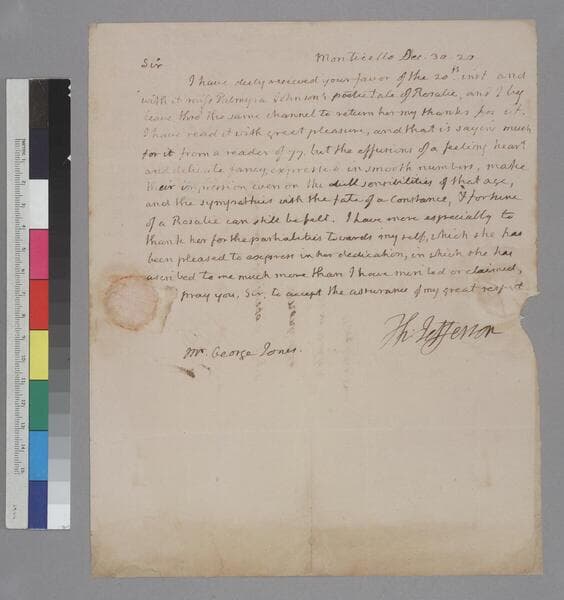 Monticello Dec. 30. 20.
Sir
I have duly recieved your favor of the 20th inst and
with it miss Palmyra Johnson's poetic tale of Rosalie, and I beg
leave thro' the same channel to return her my thanks for it.
I have read it with great pleasure, and that is saying much
for it from a reader of 77. but the effusions of a feeling heart
and delicate fancy, expressed in smooth numbers, make
their impression even on the dull sensibilities of that age,
and the sympathies with the fate of a Constance, & fortune
of a Rosalie can still be felt. I have more especially to
thank her for the partialities towards myself, which she has
been pleased to express in her dedication, in which she has
ascribed to me much more than I have merited or claimed,
pray you, Sir, to accept the assurance of my great respect
Th: Jefferson
Mr. George Jones.